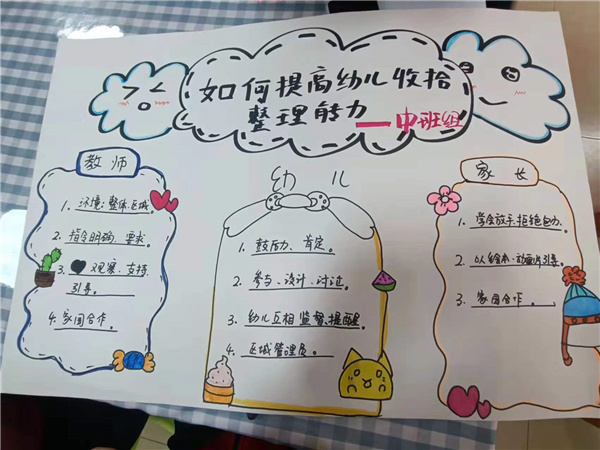 如何提高幼儿收拾
整理能力—中班组
教师
1. 环境:整体.区域.
2. 指令明确、要求
3. 观察、支持
引导。
4. 家园合作。
幼儿
1. 鼓励、肯定。
2. 参与、设计、讨论。
3. 幼儿互相监督、提醒。
4. 区域管理员。
家长
1. 学会放手.拒绝包办.
2. 以绘本、动画片引导。
3. 家园合作。